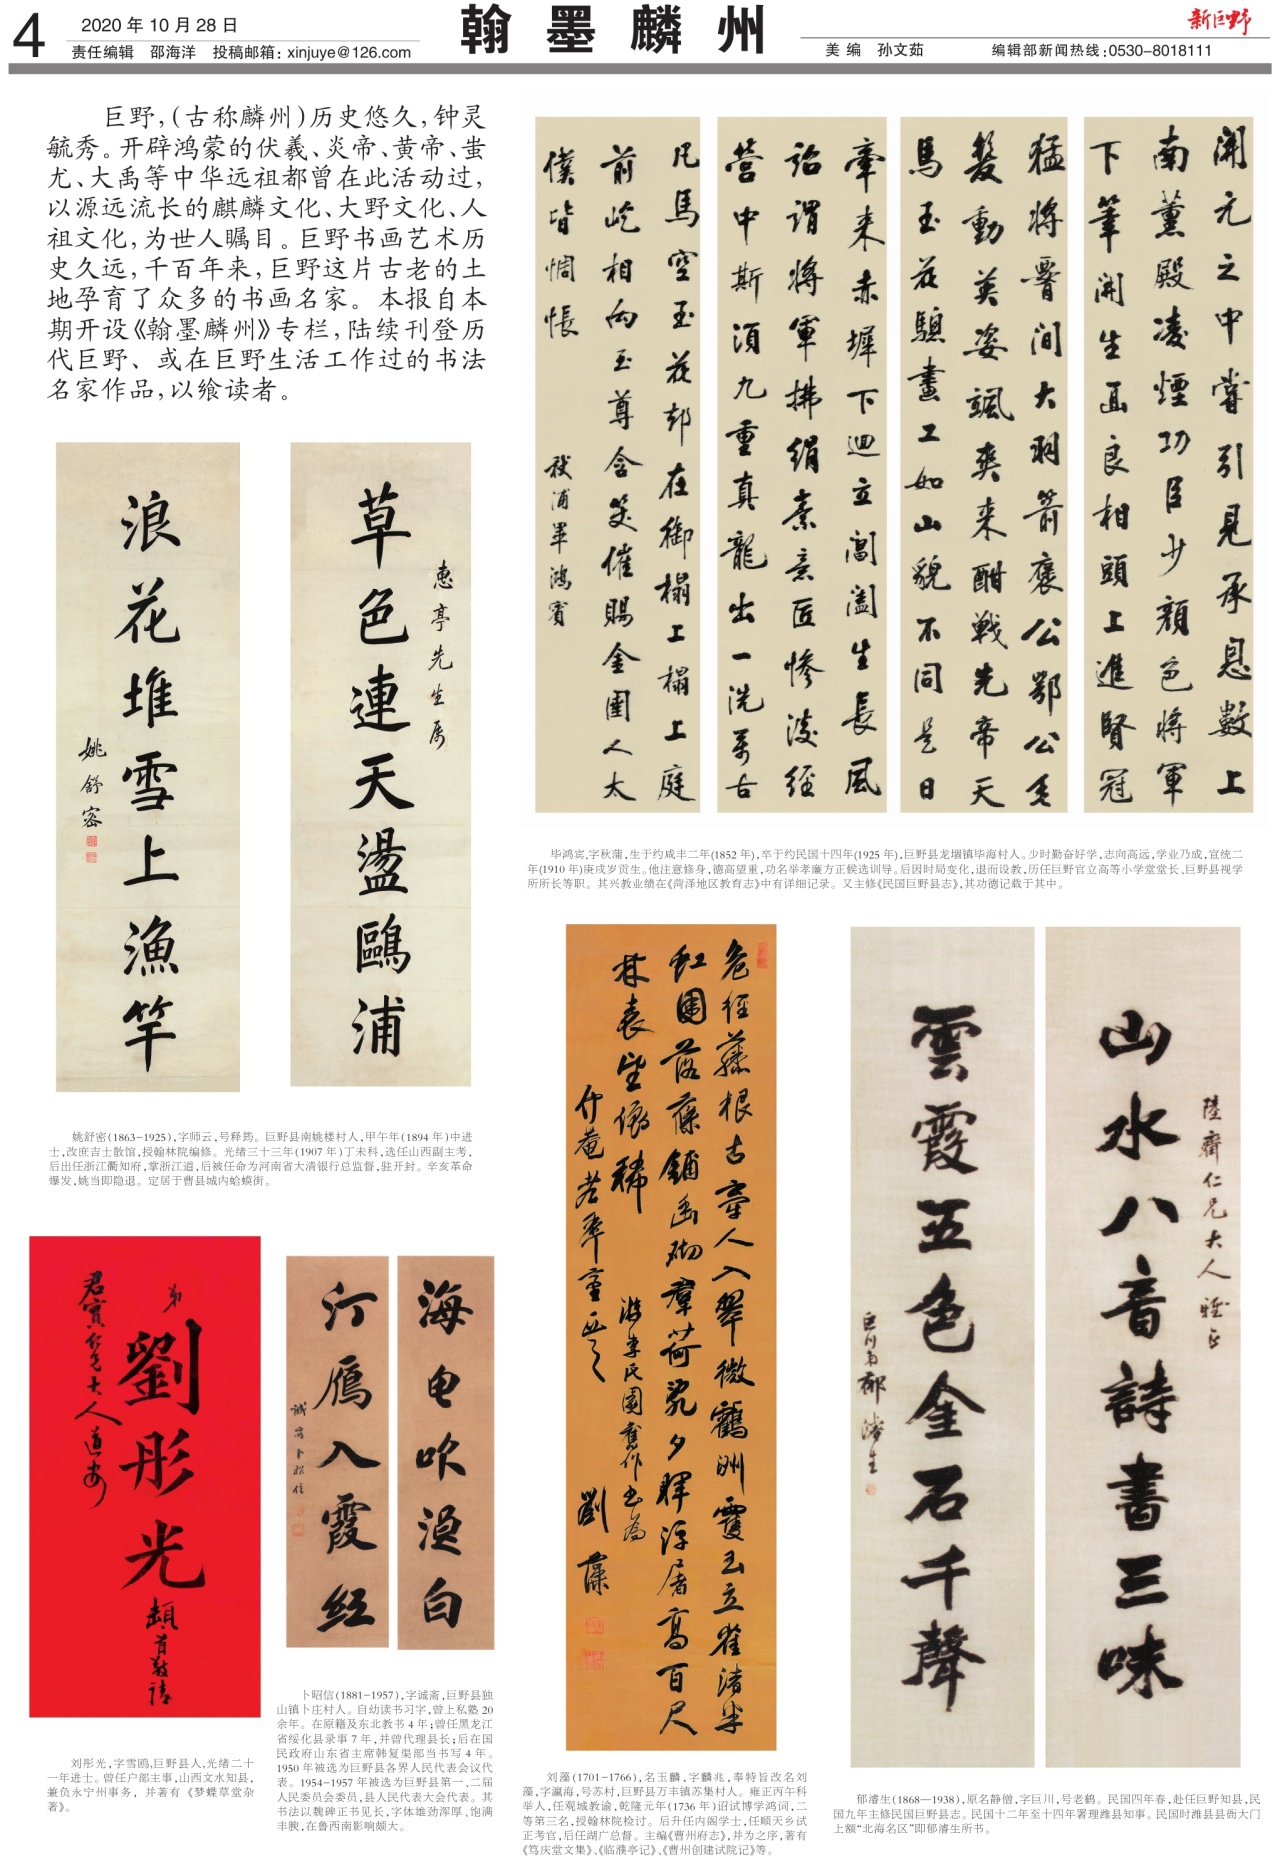 4
2020 年 10 月 28 日
责任编辑 邵海洋 投稿邮箱：xinjuye@126.com
翰墨麟州
新巨野
美 编 孙文茹
编辑部新闻热线:0530-8018111
巨野，（古称麟州）历史悠久，钟灵
毓秀。开辟鸿蒙的伏羲、炎帝、黄帝、蚩
尤、大禹等中华远祖都曾在此活动过，
以源远流长的麒麟文化、大野文化、人
祖文化，为世人瞩目。巨野书画艺术历
史久远，千百年来，巨野这片古老的土
地孕育了众多的书画名家。本报自本
期开设《翰墨麟州》专栏，陆续刊登历
代巨野、或在巨野生活工作过的书法
名家作品，以飨读者。
開元之中常引見承恩數上
南薰殿凌煙功臣少顏色將軍
下筆開生面良相頭上進賢冠
猛將腰間大羽箭褒公鄂公毛
髮動英姿颯爽来酣戰先帝天
馬玉花驄畫工如山貌不同是日
牽来赤墀下迥立閶闔生長風
詔謂將軍拂絹素意匠慘淡經
營中斯須九重真龍出一洗萬古
凡馬空玉花却在御榻上榻上庭
前屹相向至尊含笑催賜金圉人太
僕皆惆悵
秋浦畢鴻賓
毕鸿宾,字秋蒲，生于约咸丰二年(1852 年)，卒于约民国十四年(1925 年)，巨野县龙堌镇毕海村人。少时勤奋好学，志向高远，学业乃成，宣统二
年(1910 年)庚戌岁贡生。他注意修身，德高望重，功名举孝廉方正候选训导。后因时局变化，退而设教，历任巨野官立高等小学堂堂长、巨野县视学
所所长等职。其兴教业绩在《菏泽地区教育志》中有详细记录。又主修《民国巨野县志》，其功德记载于其中。
惠亭先生属
草色連天盪鷗浦
浪花堆雪上漁竿
姚舒密
姚舒密(1863-1925)，字师云，号释筠。巨野县南姚楼村人，甲午年(1894 年)中进
士，改庶吉士散馆，授翰林院编修。光绪三十三年(1907 年)丁未科，选任山西副主考，
后出任浙江衢知府，掌浙江道，后被任命为河南省大清银行总监督，驻开封。辛亥革命
爆发，姚当即隐退。定居于曹县城内蛤蟆街。
弟
劉彤光
頓首敬請
君實仁兄大人道安
刘彤光，字雪鸥,巨野县人,光绪二十
一年进士。曾任户部主事，山西文水知县，
兼负永宁州事务，并著有《梦蝶草堂杂
著》。
海色吹温白
汀雁入霞红
诚斋卜昭信
卜昭信(1881-1957)，字诚斋，巨野县独
山镇卜庄村人。自幼读书习字，曾上私塾 20
余年。在原籍及东北教书 4 年；曾任黑龙江
省绥化县录事 7 年，并曾代理县长；后在国
民政府山东省主席韩复渠部当书写 4 年。
1950 年被选为巨野县各界人民代表会议代
表。1954-1957 年被选为巨野县第一、二届
人民委员会委员，县人民代表大会代表。其
书法以魏碑正书见长，字体雄劲浑厚、饱满
丰腴，在鲁西南影响颇大。
危徑藤根古牽人入翠微鶴洲霞玉立雀渚半
紅圍落蘂鋪幽砌群荷亂夕暉浮屠高百尺
林表望依稀
遊李氏園舊作書為
劉藻
刘藻(1701-1766)，名玉麟,字麟兆,奉特旨改名刘
藻,字瀛海，号苏村，巨野县万丰镇苏集村人。雍正丙午科
举人，任观城教谕，乾隆元年(1736 年)诏试博学鸿词，二
等第三名，授翰林院检讨。后升任内阁学士，任顺天乡试
正考官，后任湖广总督。主编《曹州府志》，并为之序，著有
《笃庆堂文集》、《临濮亭记》、《曹州创建试院记》等。
陸齋仁兄大人雅正
山水八音詩書三味
雲霞五色金石千聲
巨川弟郁濬生
郁濬生(1868—1938)，原名静僧，字巨川，号老鹤。民国四年春，赴任巨野知县，民
国九年主修民国巨野县志。民国十二年至十四年署理潍县知事。民国时潍县县衙大门
上额“北海名区”即郁濬生所书。